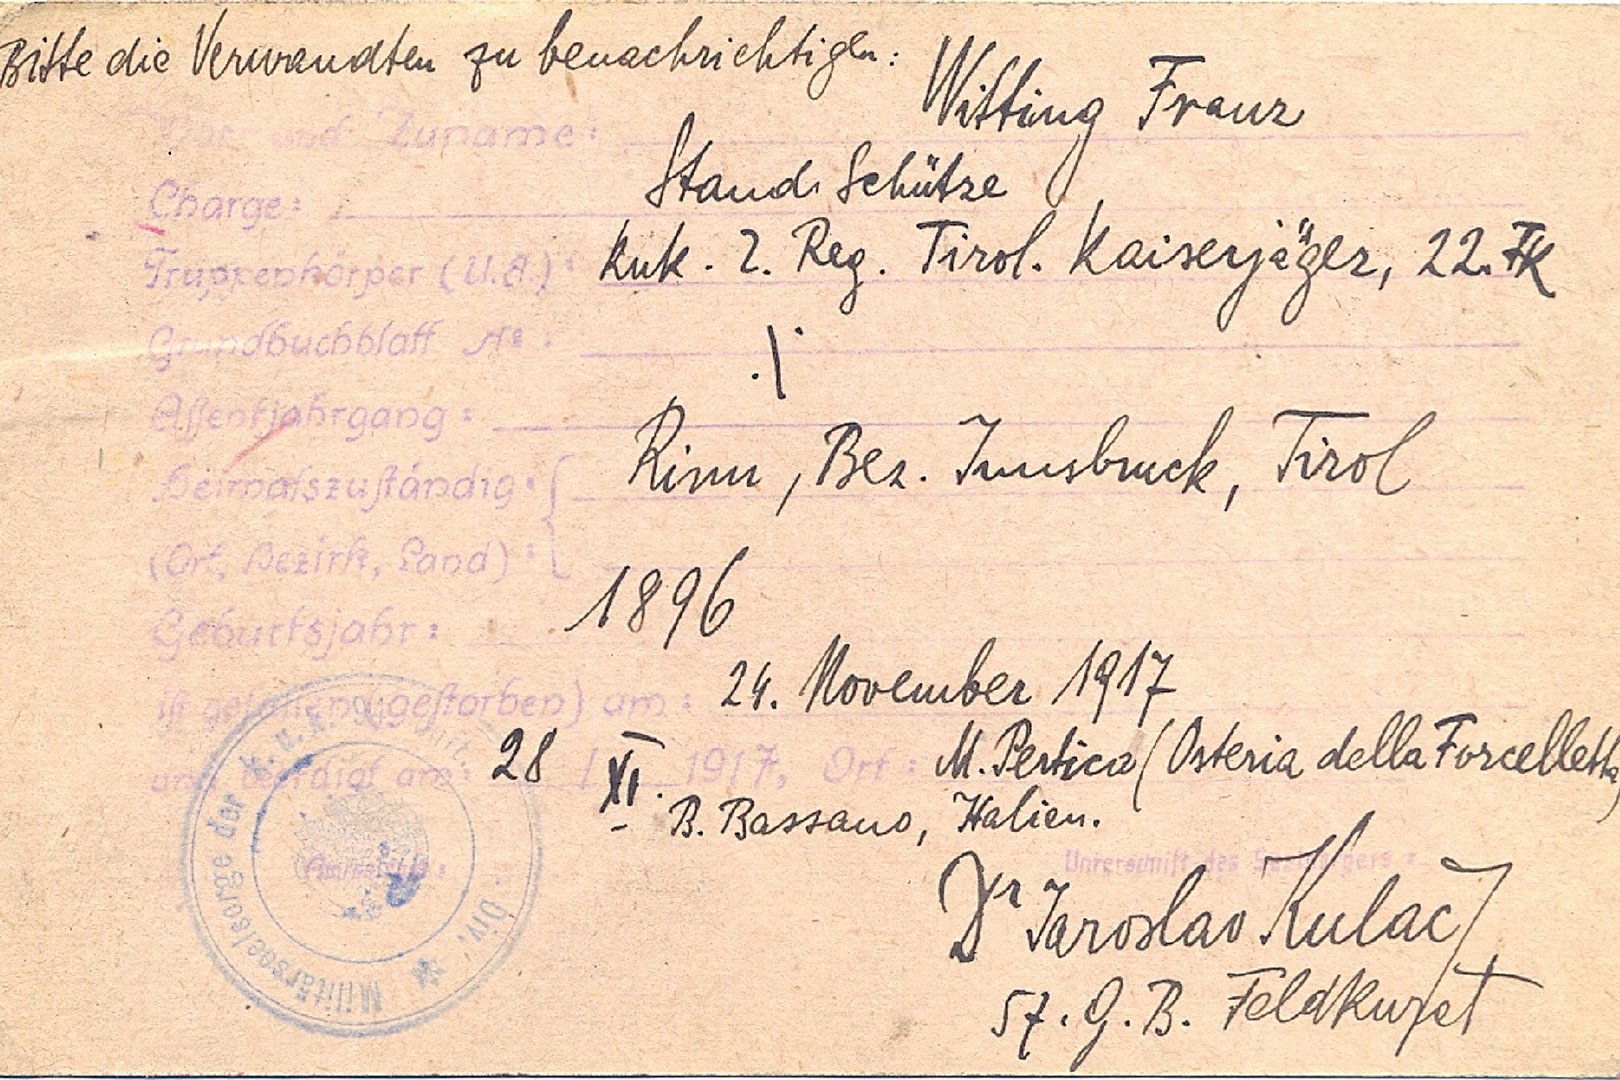 Bitte die Verwandten zu benachrichtigen:
Vor und Zuname: Witting Franz
Charge: Stand. Schütze
Truppenkörper (U.A.): kuk. 2. Reg. Tirol. Kaiserjäger, 22. FK
Grundbuchblatt No: ./.
Assentjahrgang:
Heimatszuständig: Rinn, Bez. Innsbruck, Tirol
(Ort, Bezirk, Land):
Geburtsjahr: 1896
ist gefallen (gestorben) am: 24. November 1917
und beerdigt am: 28 / XI. 1917, Ort: M. Pertica (Osteria della Forcelletta)
B. Bassano, Italien.
Unterschrift des Seelsorgers:
Dr Jaroslav Kulač
57. G. B. Feldkurat
Militärseelsorge der k.u.k. Div.